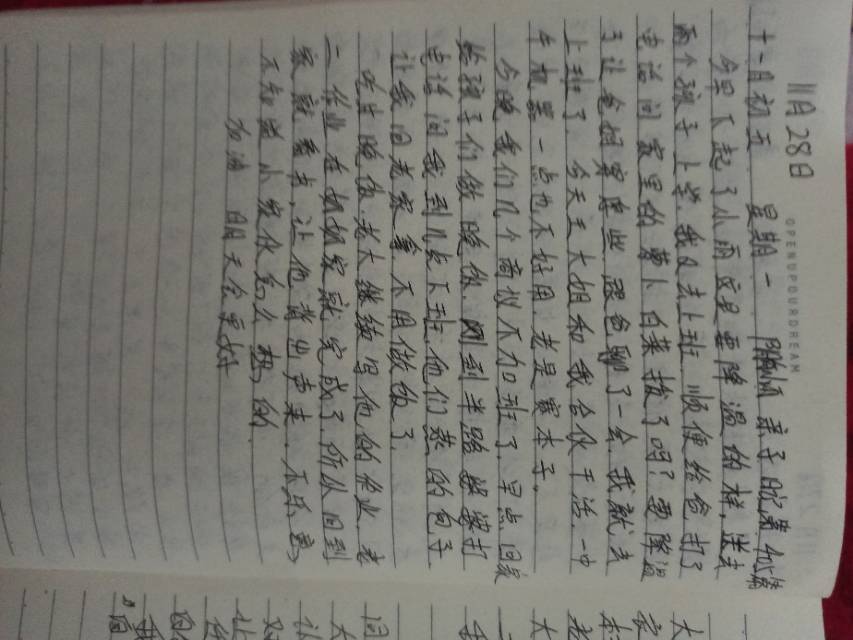 11月28日
OPENUPYOURDREAM
十一月初五 星期一 阴 亲子日记第405篇
今早下起了小雨,这是要降温的样,送去
两个孩子上学,我又去上班,顺便给爸打了
电话问家里的萝卜白菜拔了吗?要降温
了让爸妈穿厚些,跟爸聊了一会,我就去
上班了,今天王大姐和我合伙干活,一中
午机器一点也不好用,老是
今晚我们几个商议不加班了,早点回家
给孩子们做晚饭,刚到半路婆婆打
电话问我到几点下班,他们蒸的包子
让我回老家拿,不用做饭了.
吃上晚饭,老大继续写他的作业,老
二作业在奶奶家就完成了,所以回到
家就看书,让他
不知道小家伙怎么想的.
加油 明天会更好